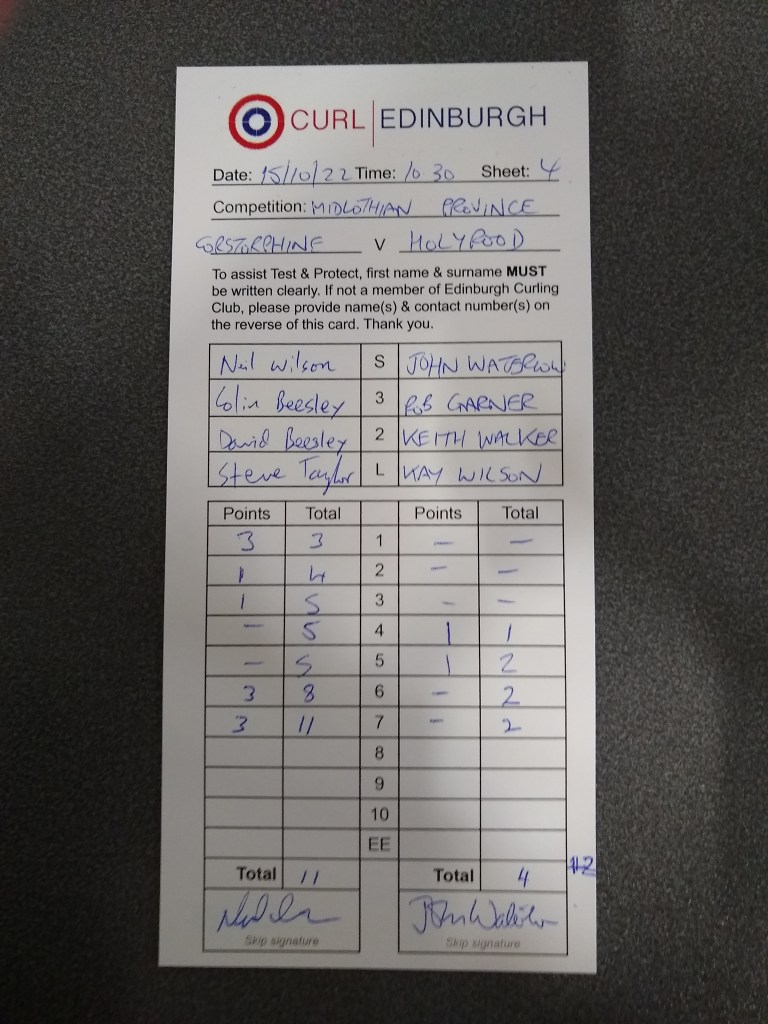 CURL | EDINBURGH
Date: 15/10/22 Time: 10 30 Sheet: 4
Competition: MIDLOTHIAN PROVINCE
CORSTORPHINE V HOLYROOD
To assist Test & Protect, first name & surname MUST
be written clearly. If not a member of Edinburgh Curling
Club, please provide name(s) & contact number(s) on
the reverse of this card. Thank you.
Neil Wilson S JOHN
Colin Beesley 3 ROB GARNER
David Beesley 2 KEITH WALKER
Steve Taylor L KAY WILSON
Points Total Points Total
3 3 1 – –
1 4 2 – –
1 5 3 – –
– 5 4 1 1
– 5 5 1 2
3 8 6 – 2
3 11 7 – 2
8
9
10
EE
Total 11 Total 4
Skip signature Skip signature